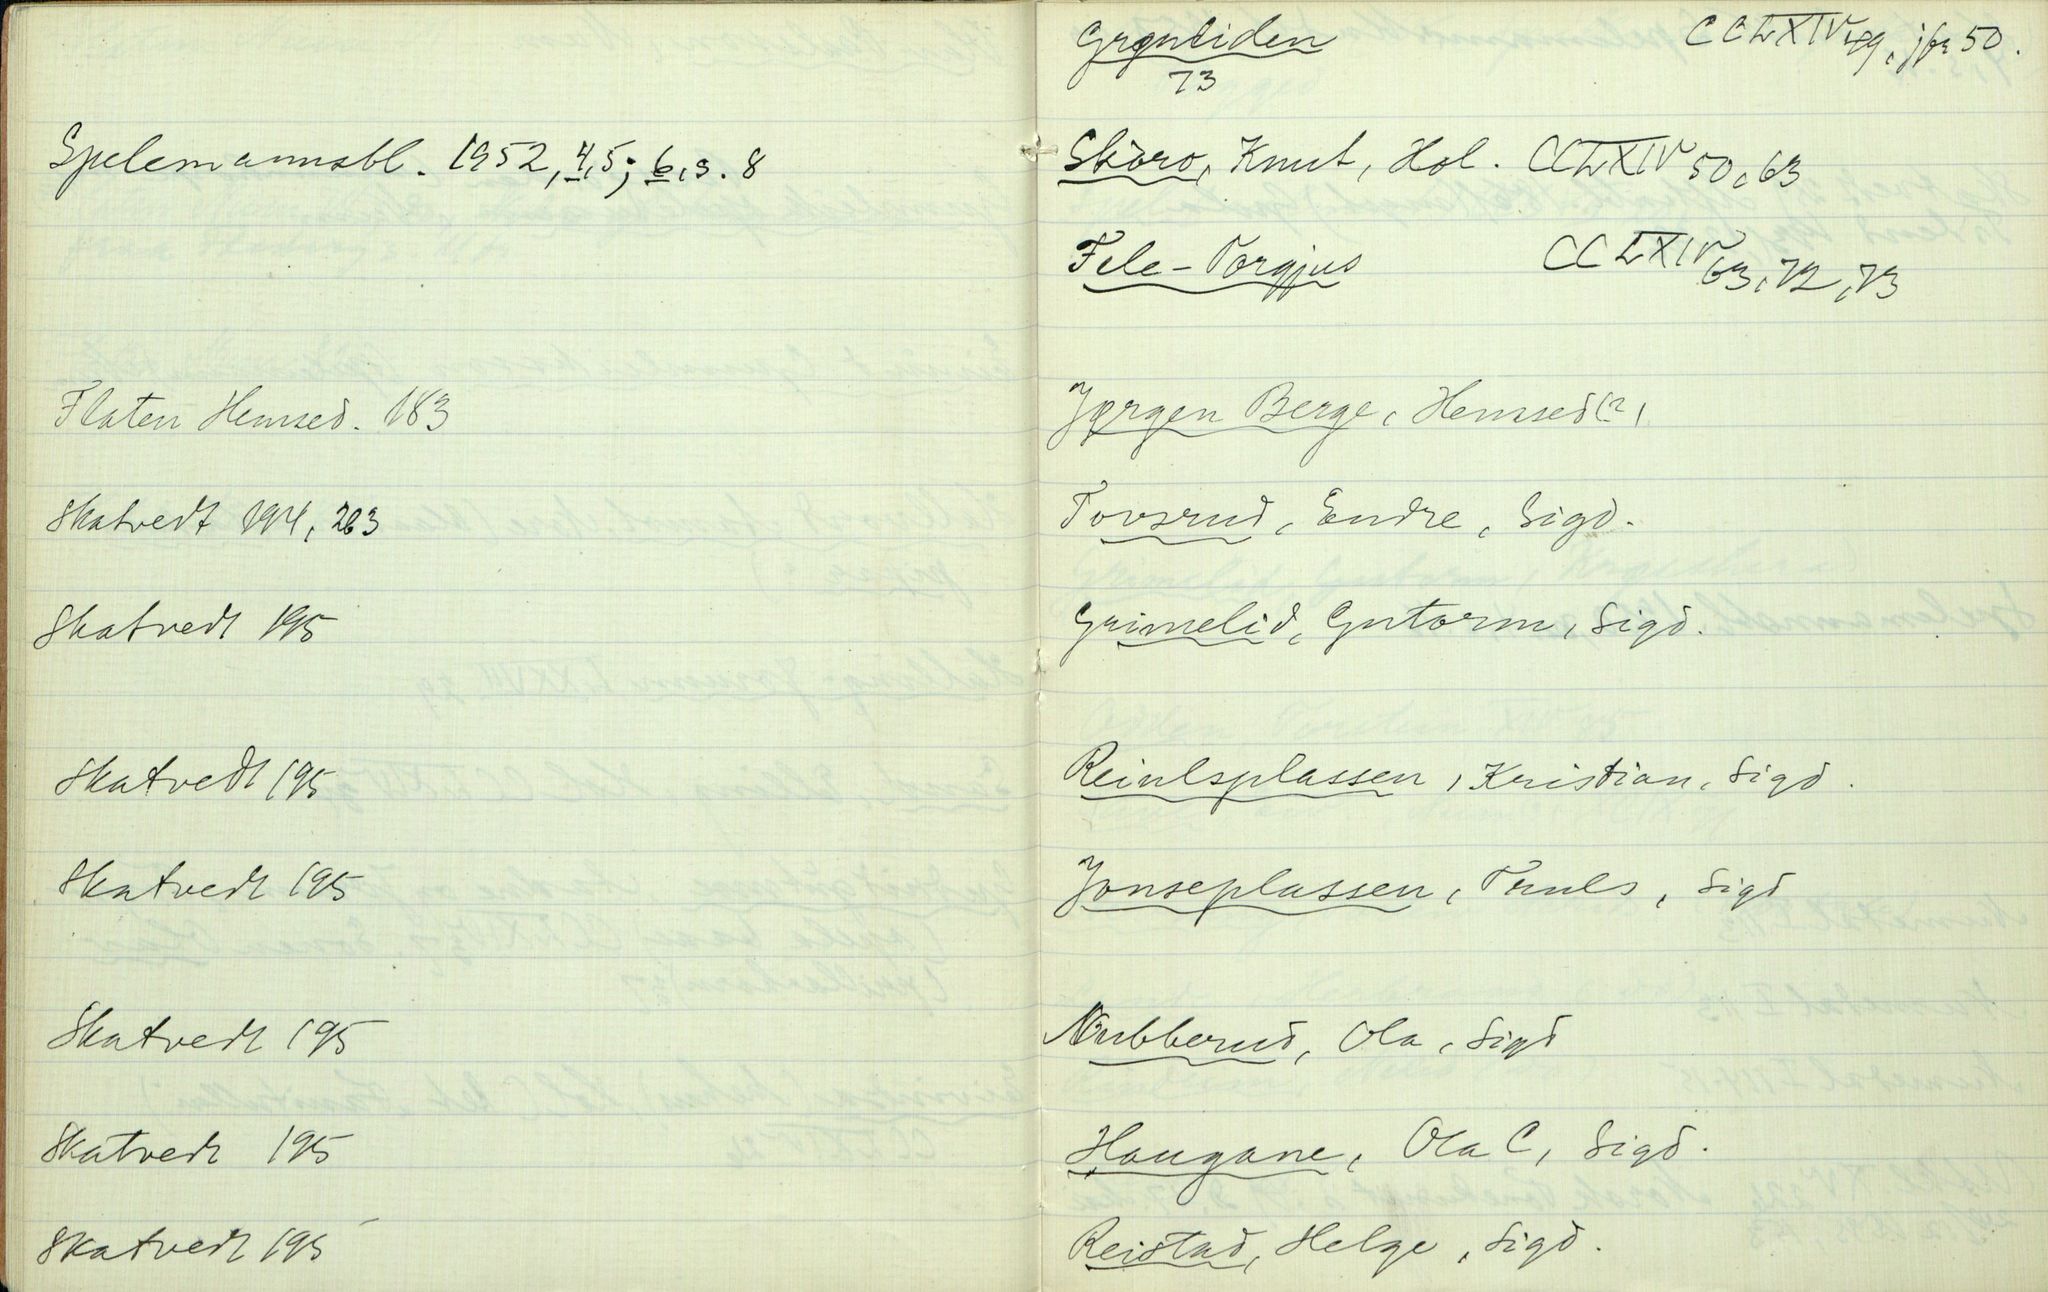 Spelemannsbl. 1952, 4,5; 6, s. 8
Flaten Hemsed. 183
Skatvedt 194, 263
Skatvedt 195
Skatvedt 195
Skatvedt 195
Skatvedt 195
Skatvedt 195
Skatvedt 195
Grøntiden CCLXIV 49, jfr 50.
73
Skoro, Knut, Hol. CCLXIV 50, 63
Fele-Torgjus CCLXIV 63, 72, 73
Jørgen Berge, Hemsed(?)
Tovsrud, Endre, Sigd.
Grimelid, Gutorm, Sigd.
Reinsplassen, Kristian, Sigd.
Jonseplassen, Truls, Sigd
Nubberud, Ola, Sigd
Haugane, Ola C, Sigd.
Reistad, Helge, Sigd.